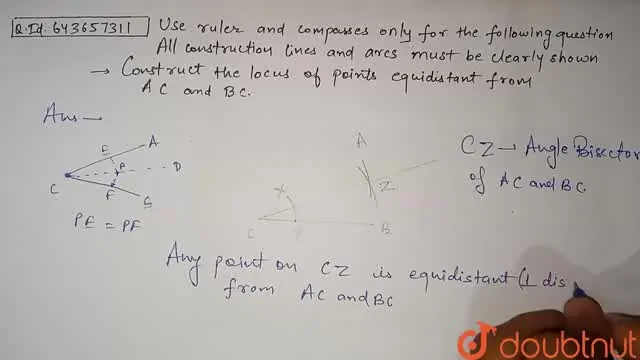 Q.Id. 643657311 Use ruler and compasses only for the following question
All construction lines and arcs must be clearly shown
→ Construct the locus of points equidistant from
AC and BC.
Ans —
E A
P D
C
F
PE = PF
A
X Z
C Y B
CZ → Angle Bisector
of AC and BC
Any point on CZ is equidistant (⊥ dis
from AC and BC
doubtnut